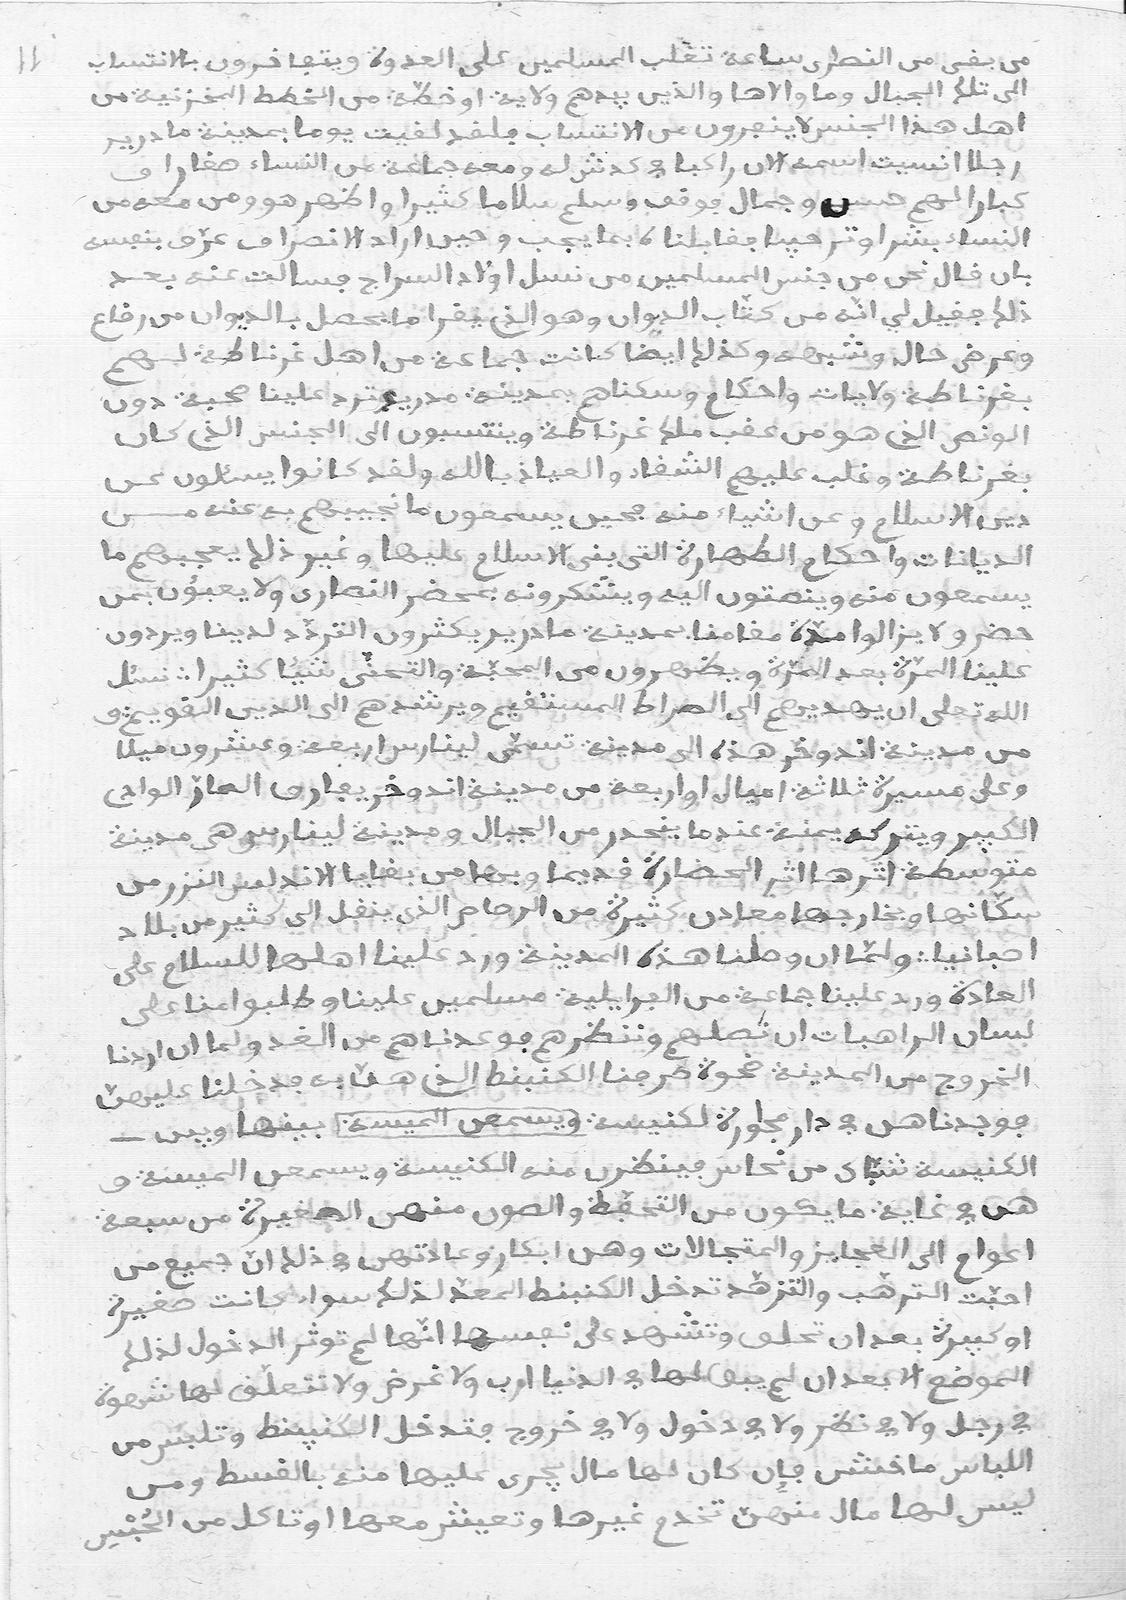 من بقى من النصارى ساعة تغلب المسلمين على العدوة ويتفاخرون بالانتساب
الى تلك الجبال وما والاها والذين بيدهم ولاية اوخطة من الخطط المخزنية من
اهل هذا الجنس لا ينفرون من الانتساب فلقد لقيت يوما بمدينة مادريد
رجلا انسيت اسمه الان راكبا في كدش له ومعه جماعة من النساء صغارا و
كبارا لهم حسن وجمال فوقف وسلم سلاما كثيرا واظهر هو ومن معه من
النساء بشرا وترحيبا فقابلناه بما يجب وحين اراد الانصراف عرّف بنفسه
بان قال نحن من جنس المسلمين من نسل اولاد السراج فسالت عنه بعد
ذلك فقيل لي انّه من كتّاب الديوان وهو الذي يقرا ما يحصل بالديوان من رقاع
وعرض حال وشبهه وكذلك ايضا كانت جماعة من اهل غرناطة لهم
بغرناطة ولايات واحكام وسكناهم بمدينة مدريد ترد علينا صحبة دون
الونص الذي هو من عقب ملك غرناطة وينتسبون الى الجنس الذي كان
بغرناطة وغلب عليهم الشقاء والعياذ بالله ولقد كانوا يسئلون عن
دين الاسلام وعن اشياء منه فحين يسمعون ما نجيبهم به عنه من
الديانات واحكام الطهارة التي بنى الاسلام عليها وغير ذلك يعجبهم ما
يسمعون منه وينصتون اليه ويشكرونه بمحضر النصارى ولا يعبؤن بمن
حضر ولا يزالوا مدّة مقامنا بمدينة مادريد يكثرون التردّد لدينا ويردون
علينا المرّة بعد المرّة ويظهرون من المحبّة والتحنّى شيئا كثيرا : نسئل
الله تعلى ان يهديهم الى الصراط المستقيم ويرشدهم الى الدين القويم و
من مدينة اندوخر هذه الى مدينة تسمّى لينارس اربعة وعشرون ميلا
وعلى مسيرة ثلاثة اميال او اربعة من مدينة اندوخر يفارق المارّ الوادي
الكبير ويتركه يمنة عندما ينحدر من الجبال ومدينة لينارس هي مدينة
متوسطة اثرها اثر الحضارة قديما وبها من بقايا الاندلس النزر من
سكّانها وبخارجها معادن كثيرة من الرصاص الذي ينقل الى كثير من بلاد
اصبانيا : ولمّا ان وصلنا هذه المدينة ورد علينا اهلها للسلام على
العادة وورد علينا جماعة من الفرايلية مسلمين علينا وطلبوا منا على
لسان الراهبات ان نصلهم وننظرهم فوعدناهم من الغد ولما ان اردنا
الخروج من المدينة ضحوة خرجنا الكنبنط الذي هنّ به فدخلنا عليهنّ
فوجدناهن في دار مجاورة لكنيسة ويسمعن الميسة بينها وبين
الكنيسة شبّاك من نحاس فينظرن منه الكنيسة ويسمعن الميسة و
هن في غاية ما يكون من التحفّظ والصون منهن الصغيرة من سبعة
اعوام الى العجايز والمتجالات وهن ابكار وعادتهن في ذلك انّ جميع من
احبّت الترهّب والتزهّد تدخل الكنبنط المعدّ لذلك سواء كانت صغيرة
او كبيرة بعد ان تحلف وتشهد على نفسها انّها لم توثر الدخول لذلك
الموضع الا بعد ان لم يبق لها في الدنيا ارب ولا غرض ولا تتعلّق لها شهوة
في رجل ولا في نظر ولا في دخول ولا في خروج فتدخل الكنبنط وتلبس من
اللباس ما خشن فان كان لها مال يجرى عليها منه بالقسط ومن
ليس لها مال منهنّ تخدم غيرها وتعيش معها او تاكل من الحُبْسِ